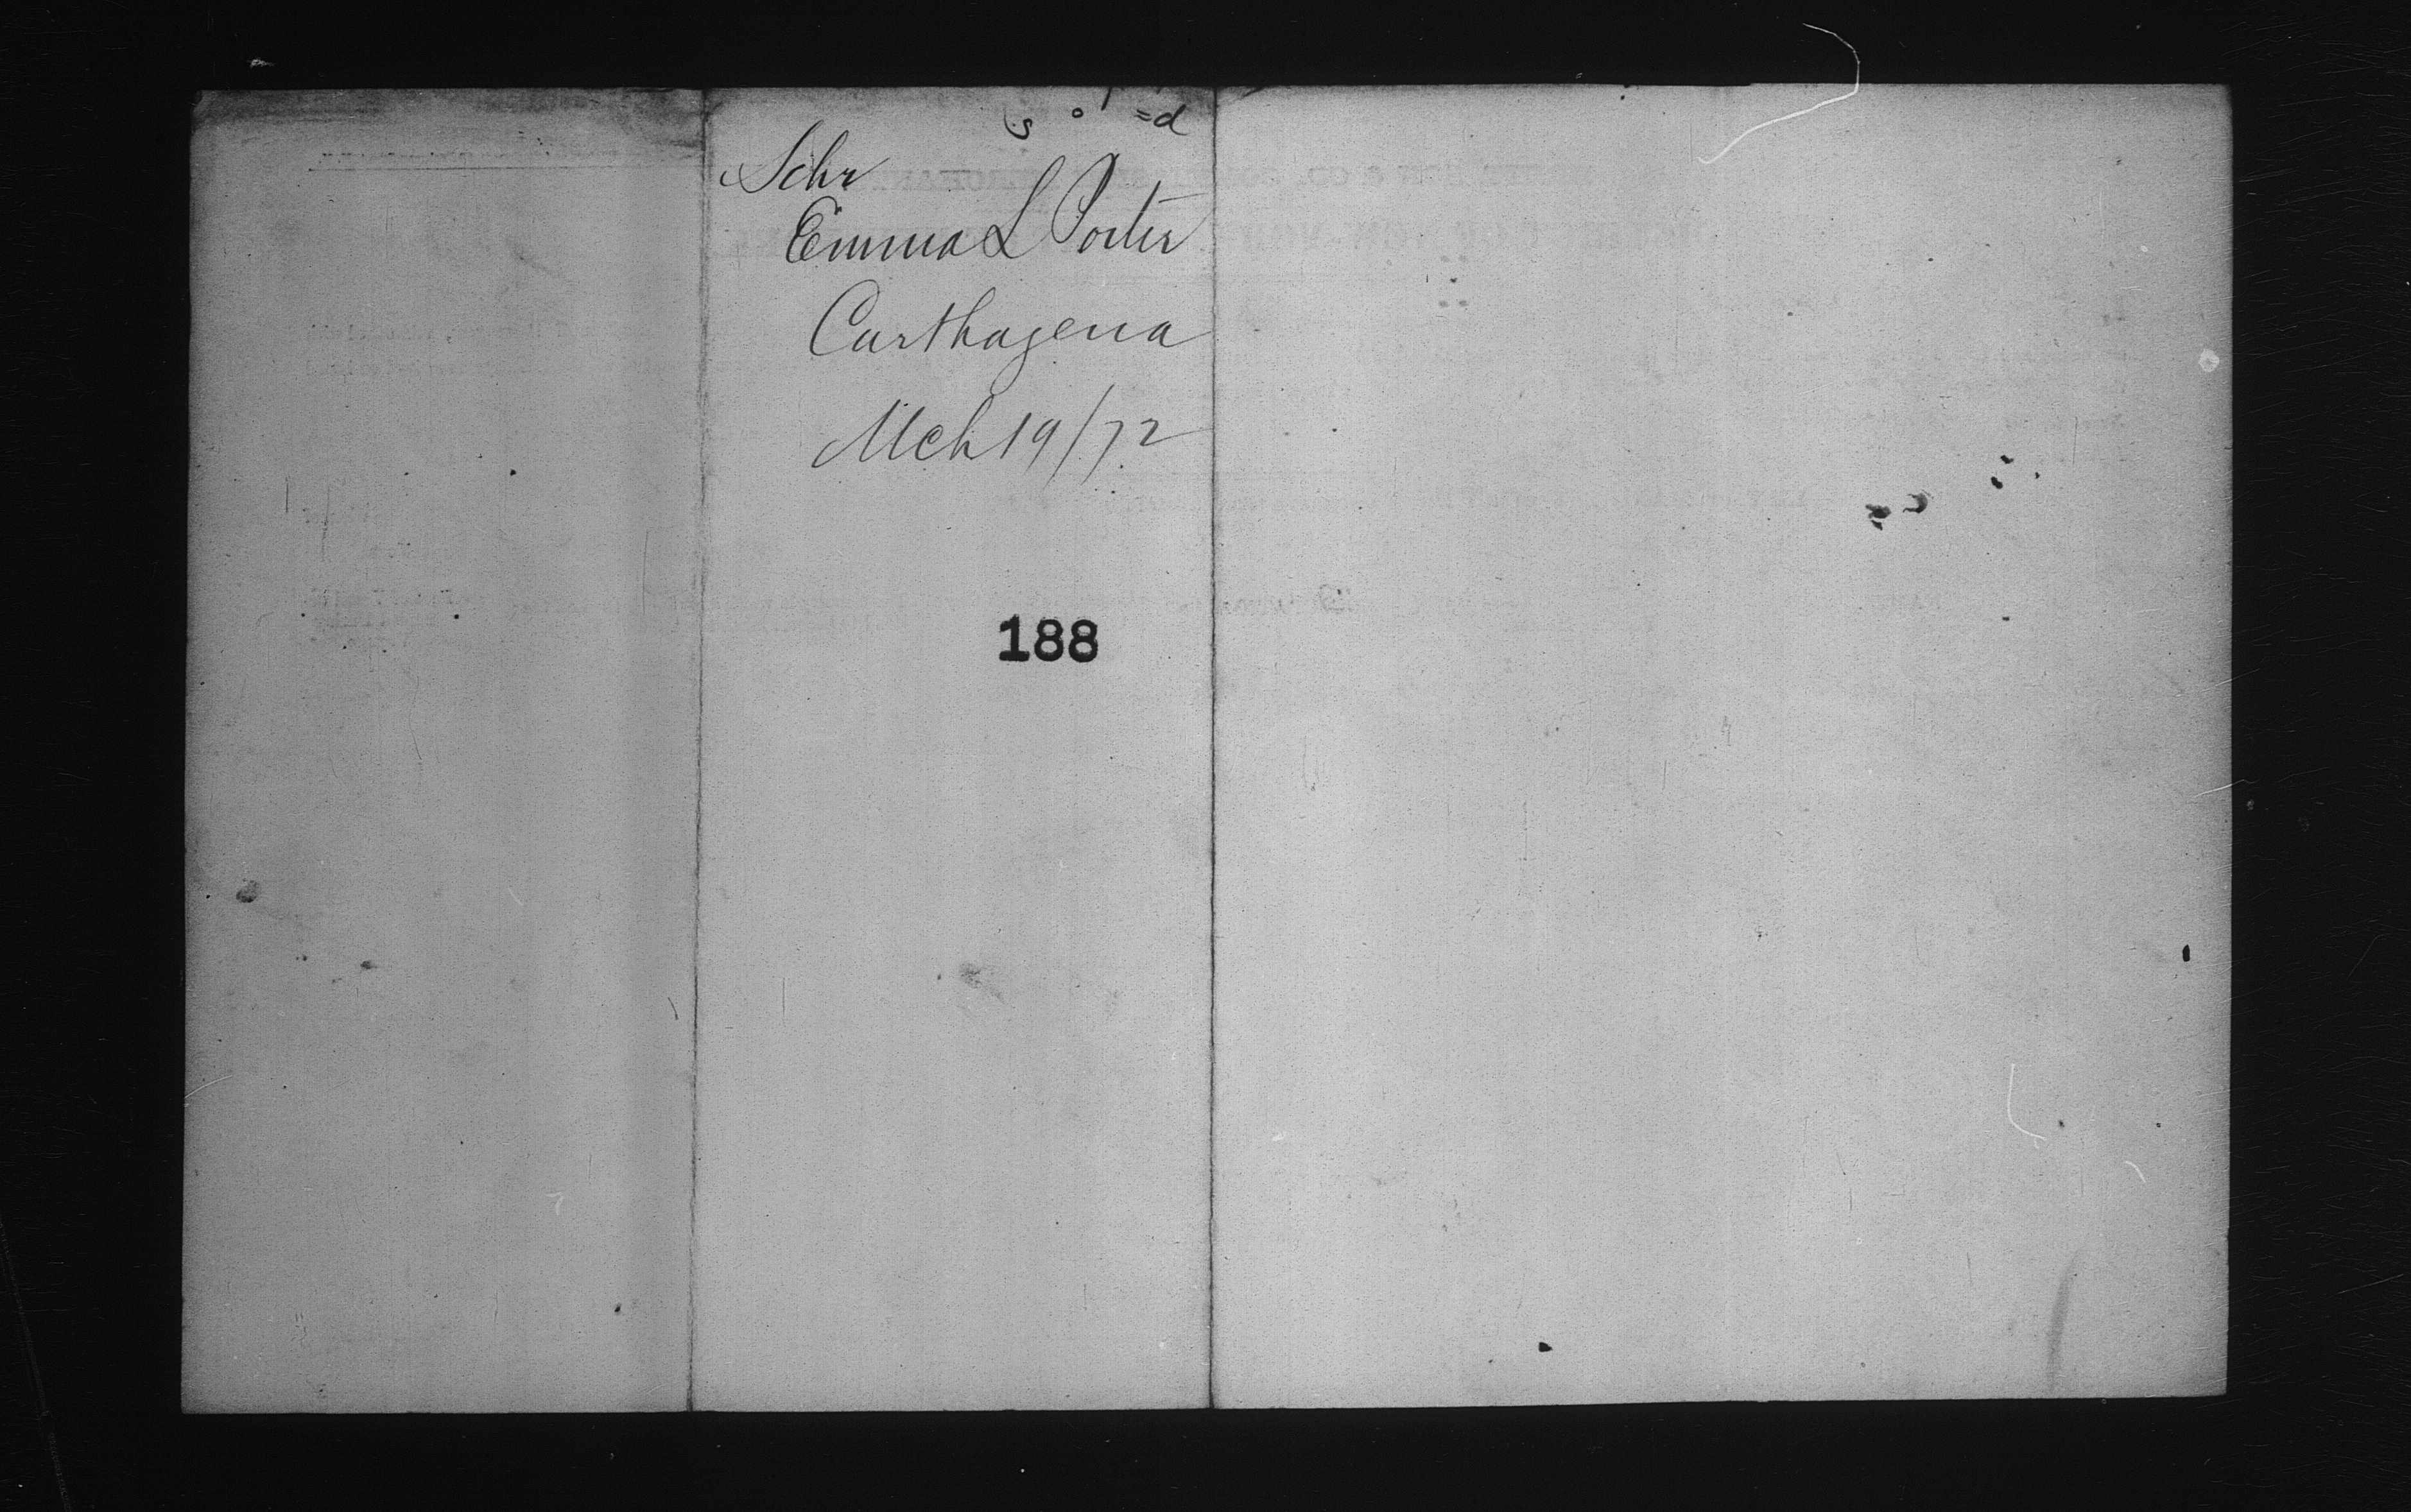 Schr
Emma L Porter
Carthagena
Mch 19/72
188